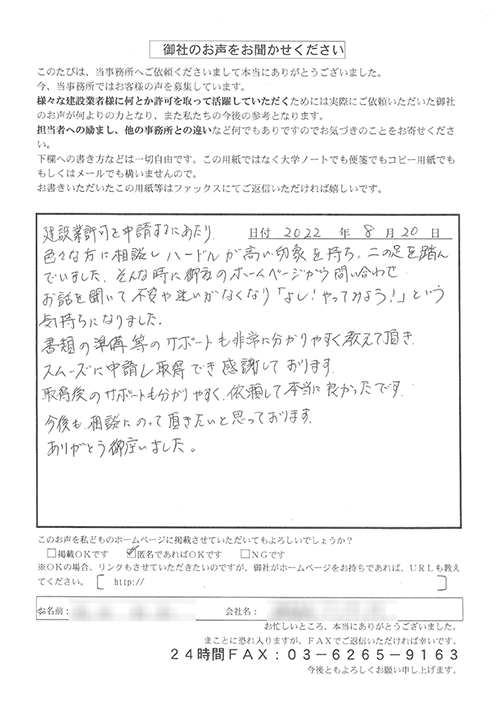 御社のお声をお聞かせください
このたびは、当事務所へご依頼くださいまして本当にありがとうございました。
今、当事務所ではお客様の声を募集しています。
様々な建設業者様に何とか許可を取って活躍していただくためには実際にご依頼いただいた御社
のお声が何よりの力となり、また私たちの今後の参考となります。
担当者への励まし、他の事務所との違いなど何でもありですのでお気づきのことをお寄せくださ
い。
下欄への書き方などは一切自由です。この用紙ではなく大学ノートでも便箋でもコピー用紙でも
もしくはメールでも構いませんので。
お書きいただいたこの用紙等はファックスにてご返信いただければ嬉しいです。
建設業許可を申請するにあたり 日付 2022 年 8 月 20 日
色々な方に相談しハードルが高い印象を持ち、二の足を踏ん
でいました。そんな時に御社のホームページから問い合わせ
お話を聞いて不安や迷いがなくなり「よし!やってみよう!」という
気持ちになりました。
書類の準備等のサポートも非常に分かりやすく教えて頂き
スムーズに申請し取得でき感謝しております。
取得後のサポートも分かりやすく、依頼して本当に良かったです。
今後も相談にのって頂きたいと思っております。
ありがとう御座いました。
このお声を私どものホームページに掲載させていただいてもよろしいでしょうか?
□掲載OKです ☑匿名であればOKです □NGです
※OKの場合、リンクもさせていただきたいのですが、御社がホームページをお持ちであれば、URLも教え
てください。〔 http:// 〕
参名前: 会社名:
お忙しいところ、本当にありがとうございました。
まことに恐れ入りますが、FAXでご返信いただければ幸いです。
24時間FAX:03-6265-9163
今後ともよろしくお願い申し上げます。